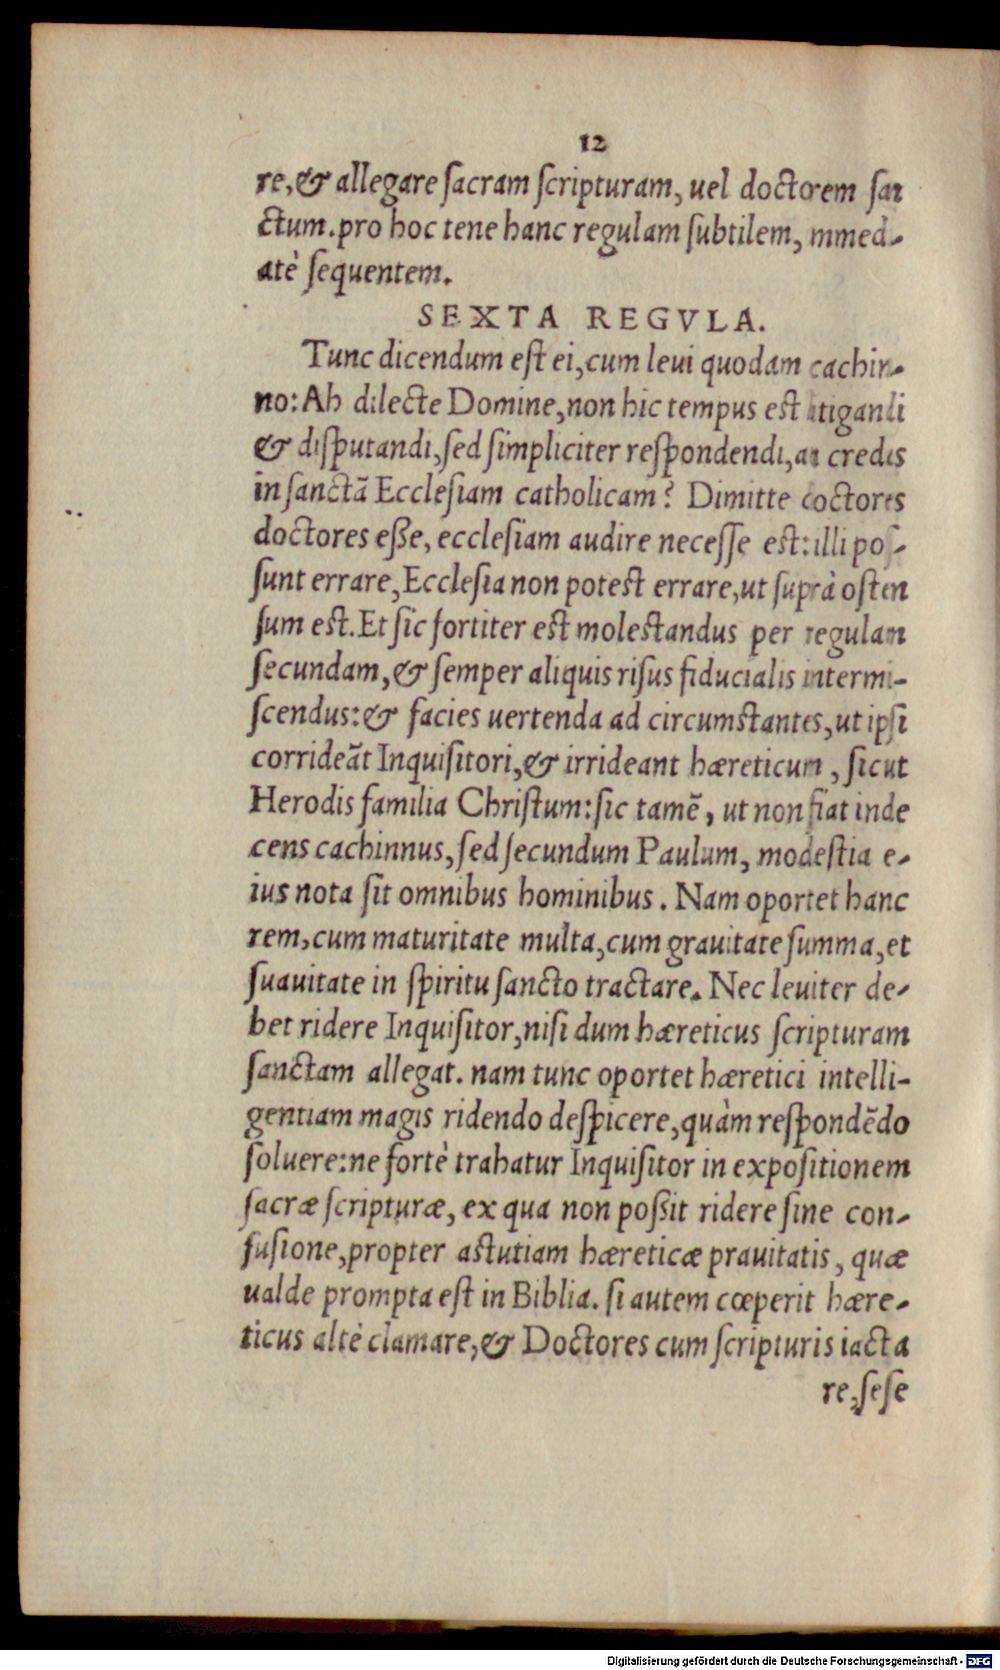 12
re, & allegare sacram scripturam, uel doctorem san
ctum. pro hoc tene hanc regulam subtilem, mmed-
atè sequentem.
SEXTA REGVLA.
Tunc dicendum est ei, cum leui quodam cachin-
no: Ah dilecte Domine, non hic tempus est litigandi
& disputandi, sed simpliciter respondendi, an credis
in sanctã Ecclesiam catholicam? Dimitte doctores
doctores eße, ecclesiam audire necesse est: illi pos-
sunt errare, Ecclesia non potest errare, ut suprà osten
sum est. Et sic fortiter est molestandus per regulam
secundam, & semper aliquis risus fiducialis intermi-
scendus: & facies uertenda ad circumstantes, ut ipsi
corrideãt Inquisitori, & irrideant hæreticum, sicut
Herodis familia Christum: sic tamẽ, ut non fiat inde
cens cachinnus, sed secundum Paulum, modestia e-
ius nota sit omnibus hominibus. Nam oportet hanc
rem, cum maturitate multa, cum grauitate summa, et
suauitate in spiritu sancto tractare. Nec leuiter de-
bet ridere Inquisitor, nisi dum hæreticus scripturam
sanctam allegat. nam tunc oportet hæretici intelli-
gentiam magis ridendo despicere, quàm respondẽdo
soluere: ne fortè trahatur Inquisitor in expositionem
sacræ scripturæ, ex qua non poßit ridere sine con-
fusione, propter astutiam hæreticæ prauitatis, quæ
ualde prompta est in Biblia. si autem cœperit hære-
ticus altè clamare, & Doctores cum scripturis iacta
re, sese
Digitalisierung gefördert durch die Deutsche Forschungsgemeinschaft - DFG